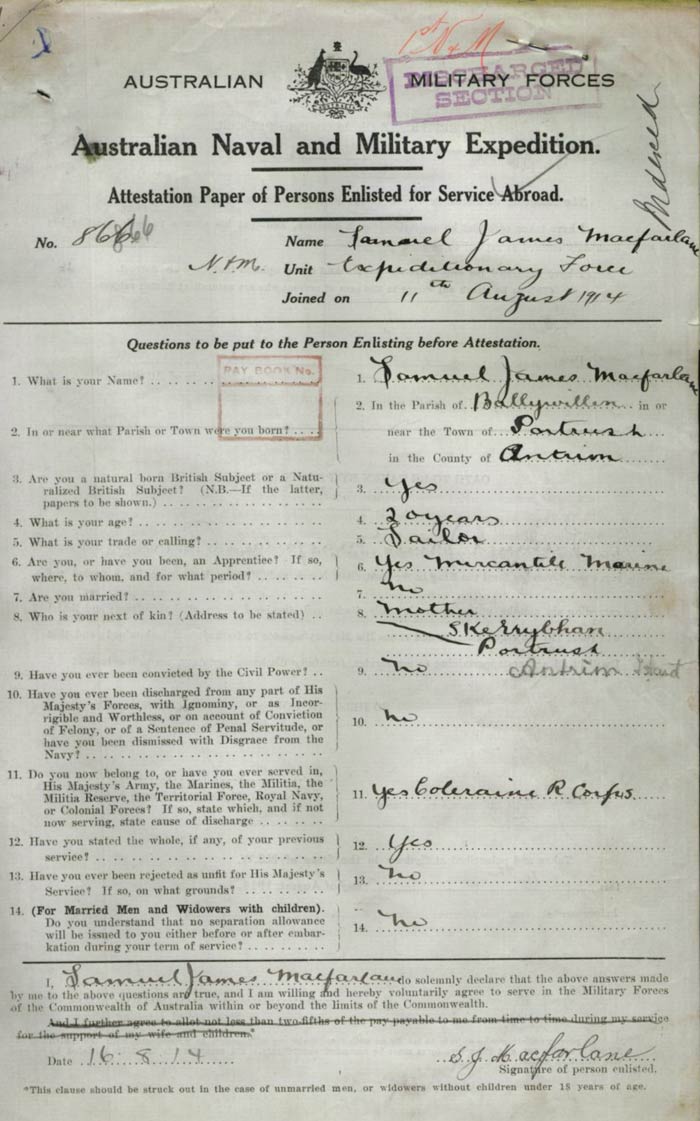 1st N & M
AUSTRALIAN MILITARY FORCES
DISCHARGED
SECTION
Australian Naval and Military Expedition.
Attestation Paper of Persons Enlisted for Service Abroad.
No. Name Samuel James Macfarlane
N. & M. Unit Expeditionary Force
Joined on 11th August 1914
Questions to be put to the Person Enlisting before Attestation.
PAY BOOK No.
1. What is your Name? 1. Samuel James Macfarlane
2. In or near what Parish or Town were you born? 2. In the Parish of Ballywillin in or
near the Town of Portrush
in the County of Antrim
3. Are you a natural born British Subject or a Natu-
ralized British Subject? (N.B.—If the latter,
papers to be shown.) 3. Yes
4. What is your age? 4. 20 years
5. What is your trade or calling? 5. Sailor
6. Are you, or have you been, an Apprentice? If so,
where, to whom, and for what period? 6. Yes Mercantile Marine
7. Are you married? 7. No
8. Who is your next of kin? (Address to be stated) 8. Mother
S Kerrybhan
Portrush
9. Have you ever been convicted by the Civil Power? 9. No Antrim
10. Have you ever been discharged from any part of His
Majesty's Forces, with Ignominy, or as Incor-
rigible and Worthless, or on account of Conviction
of Felony, or of a Sentence of Penal Servitude, or
have you been dismissed with Disgrace from the
Navy? 10. No
11. Do you now belong to, or have you ever served in,
His Majesty's Army, the Marines, the Militia, the
Militia Reserve, the Territorial Force, Royal Navy,
or Colonial Forces? If so, state which, and if not
now serving, state cause of discharge 11. Yes Coleraine R Corfus
12. Have you stated the whole, if any, of your previous
service? 12. Yes
13. Have you ever been rejected as unfit for His Majesty's
Service? If so, on what grounds? 13. No
14. (For Married Men and Widowers with children).
Do you understand that no separation allowance
will be issued to you either before or after embar-
kation during your term of service? 14. No
I, Samuel James Macfarlane do solemnly declare that the above answers made
by me to the above questions are true, and I am willing and hereby voluntarily agree to serve in the Military Forces
of the Commonwealth of Australia within or beyond the limits of the Commonwealth.
And I further agree to allot not less than two-fifths of the pay payable to me from time to time during my service
for the support of my wife and children.*
Date 16 8 14 S. J. Macfarlane
Signature of person enlisted.
*This clause should be struck out in the case of unmarried men, or widowers without children under 18 years of age.